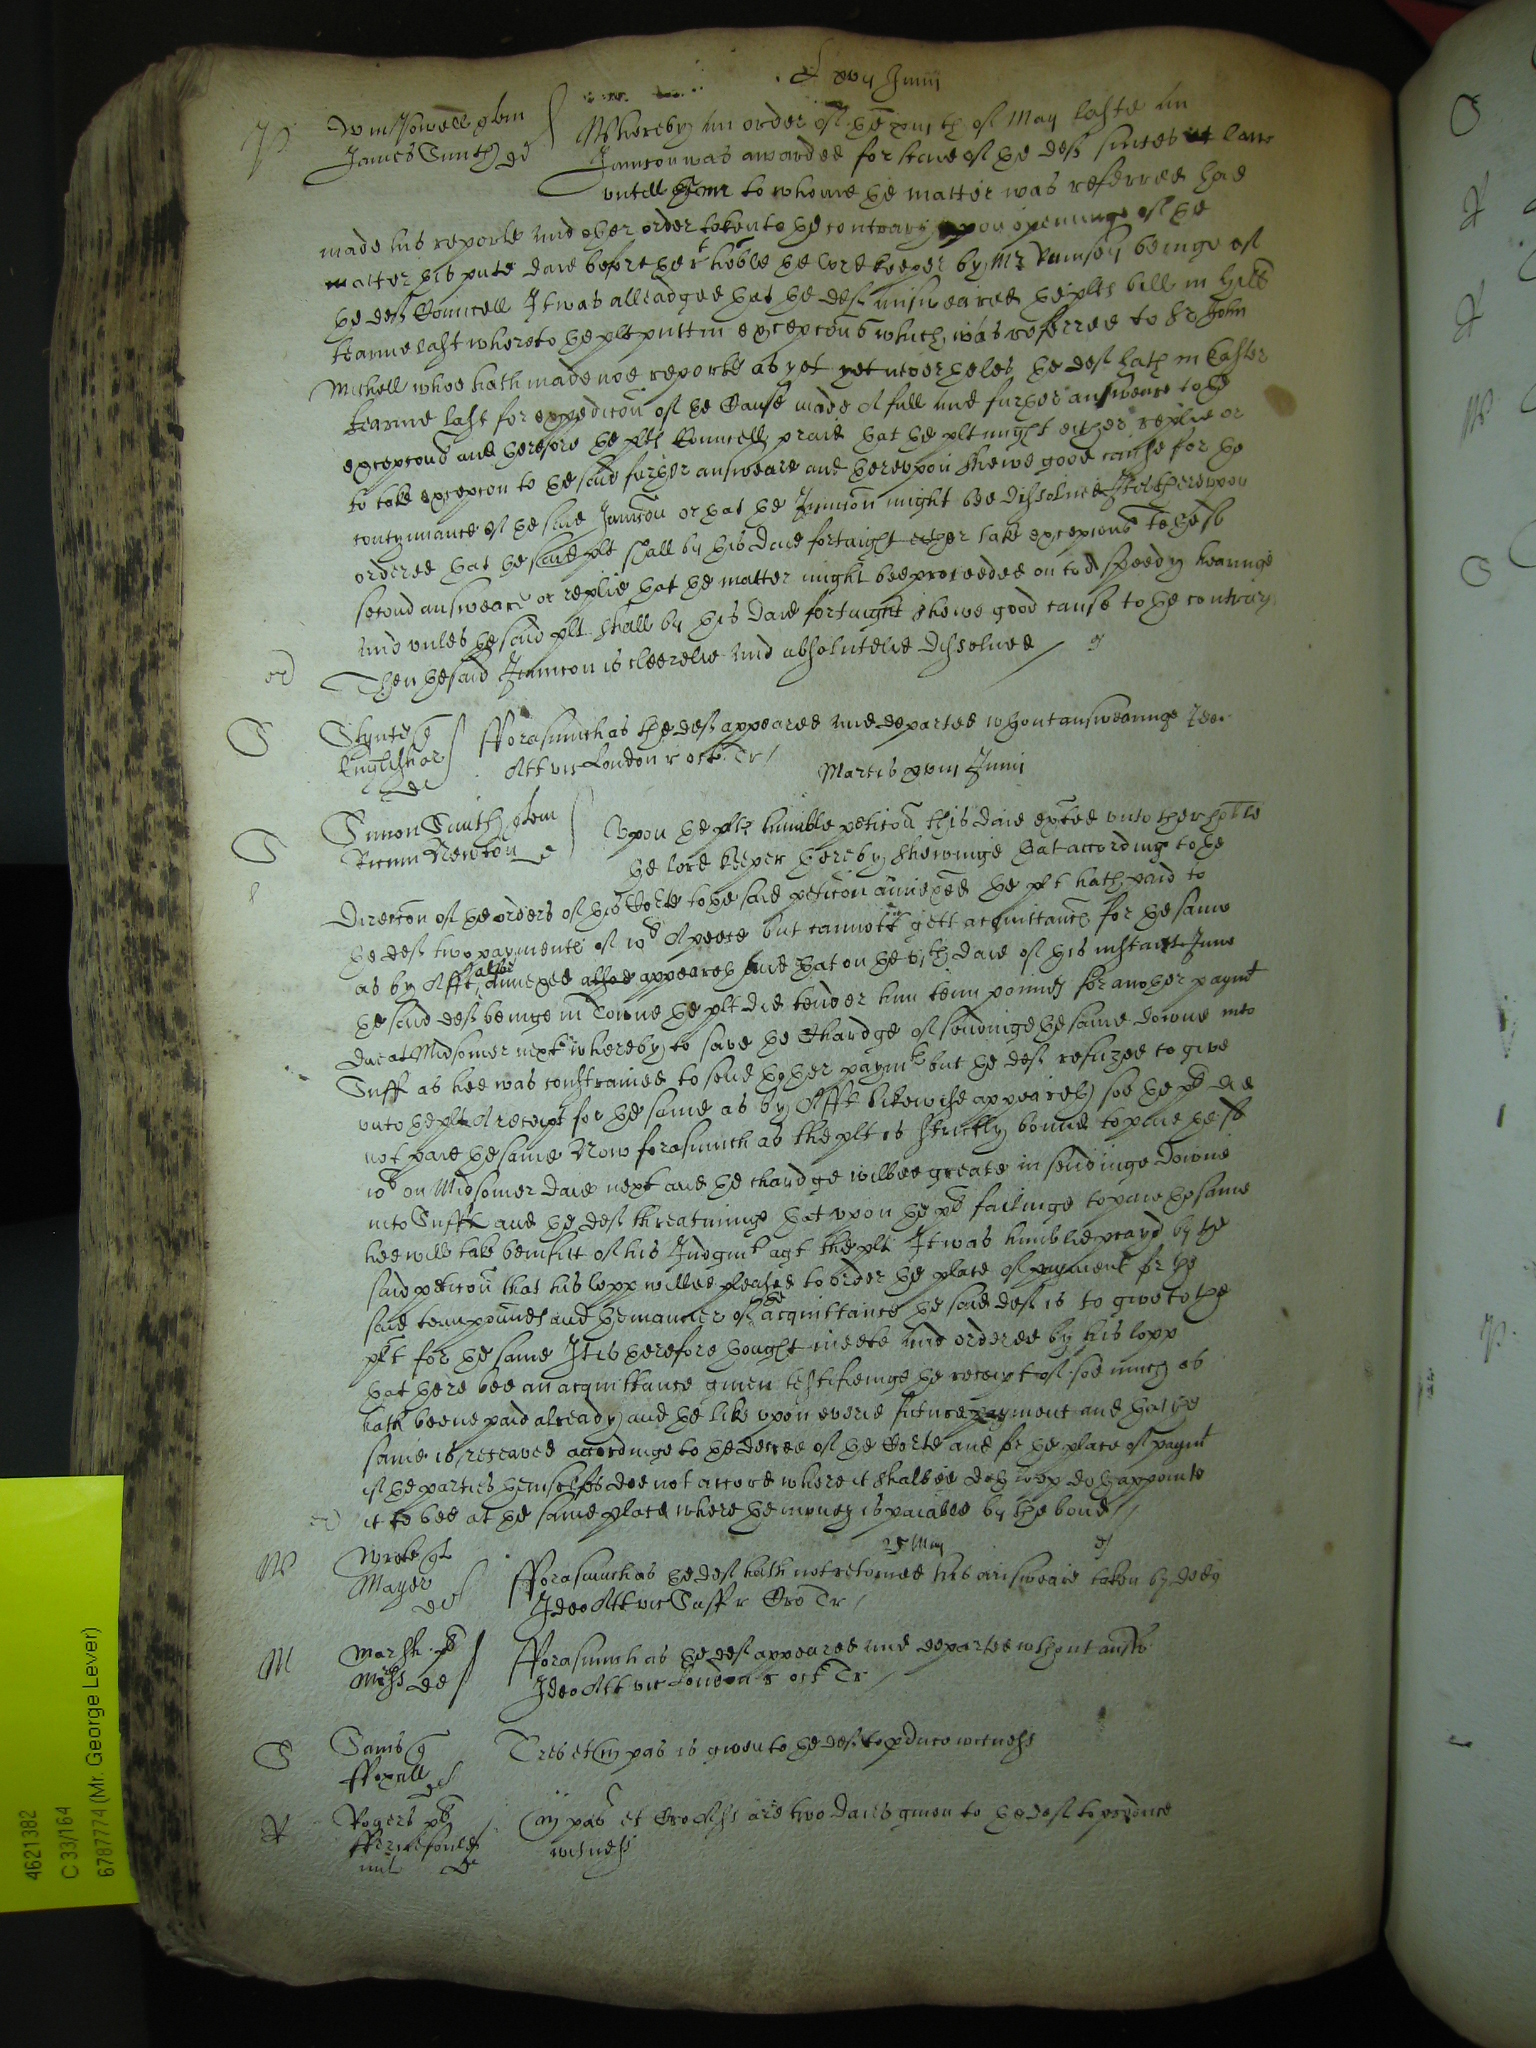 xvij Junij
P Powell quer
James Smyth def
Whereby an order of the xviijth of May laste an
Iniuncon was awarded for staie of the defs suites at lawe
untill to whome the matter was referred had
made his reporte and other order taken to the contrary upon openinge of the
matter this p'nte daie before the r hoble the lord keeper by Mr Ramsey beinge of
the defs Councell It was alleadged that the def answeared the plts bill in Hill
tearme last whereto the plt put in excepcons which was referred to Sr John
Michell whoe hath made noe reporte as yet yet neverthelesse the def hath in Easter
tearme last for expedicon of the Cause made A full and further answeare to the
excepcons and therefore the Councell praid that the plt might either replie or
to take excepcon to the said further answeare and thereupon shewe good cause for the
contynuance of the said Iniuncon or that the Iniuncon might bee dissolued It is thereupon
ordered that the said plt shall by this daie fortnight either take excepcons to the sd
second answeare or replie that the matter might bee proceeded on to A speedy hearinge
And unles the said plt shall by this daie fortnight shewe good cause to the contrary
Then the said Iniuncon is cleerelie and absolutelie dissolued
S Stynte q
Englishe def
fforasmuch as the def appeared and departed wthout answearinge Ideo
Att vic London r oct Tr
Martis xviij Junij
S Simon Smith quer
Newton def
Upon the plts humble peticon this daie exhited unto the r hoble
the lord keeper thereby shewinge that according to the
direccon of the orders of this Corte to the said peticon annexed the plt hath paid to
the def two payments of 10l A peece but cannott gett acquittance for the same
as by Affts alsoe annexed alsoe appeareth And that on the day of this instant June
the said def beinge in Towne the plt did tender him tenn pounds for another paymt
due at Midsomer next whereby to save the Chardge of sendinge the same downe into
Suff as hee was constrained to send thother paymts but the def refuzed to give
unto the plt A receipt for the same as by Afft likewise appeareth soe the pl did
not paie the same Now forasmuch as the plt is strictly bound to paie the sd
10l on Midsomer daie next and the chardge wilbee greate in sendinge downe
into Suff and the def threatninge that upon the pl failinge to paie the same
hee will take benifitt of his Iudgmt agt the plt It was humblie prayd by the
said peticon that his lopp wilbee pleased to order the place of payment for the
said tenn pounds and the manner of the acquittance the said def is to give to the
plt for the same It is therefore thought meete and ordered by his lopp
that there bee an acquittance given testifieinge the receipt of soe much as
hath beene paid already and the like upon everie future payment and that the
same is receaved accordinge to the decree of the Corte and for the place of paymt
if the parties themselves doe not accord where it shalbee doth appointe
it to bee at the same place where the money is paiable by the bond
W Wrote q
Mayer def
25 May
fforasmuch as the def hath not retorned his answeare taken by
Ideo Att vic Suff r Cro Tr
M Marsh pl
def
fforasmuch as the def appeared and departed wthout answ
Ideo Att vic London r oct Tr
S Sams q
ffoxall def
Tres et pas is given to the def to p'duce witness
R Rogers pl
def
pas et Cro Ass are two daies given to the def to produce
witness
4621382
C 33/164
6787774 (Mr. George Lever)